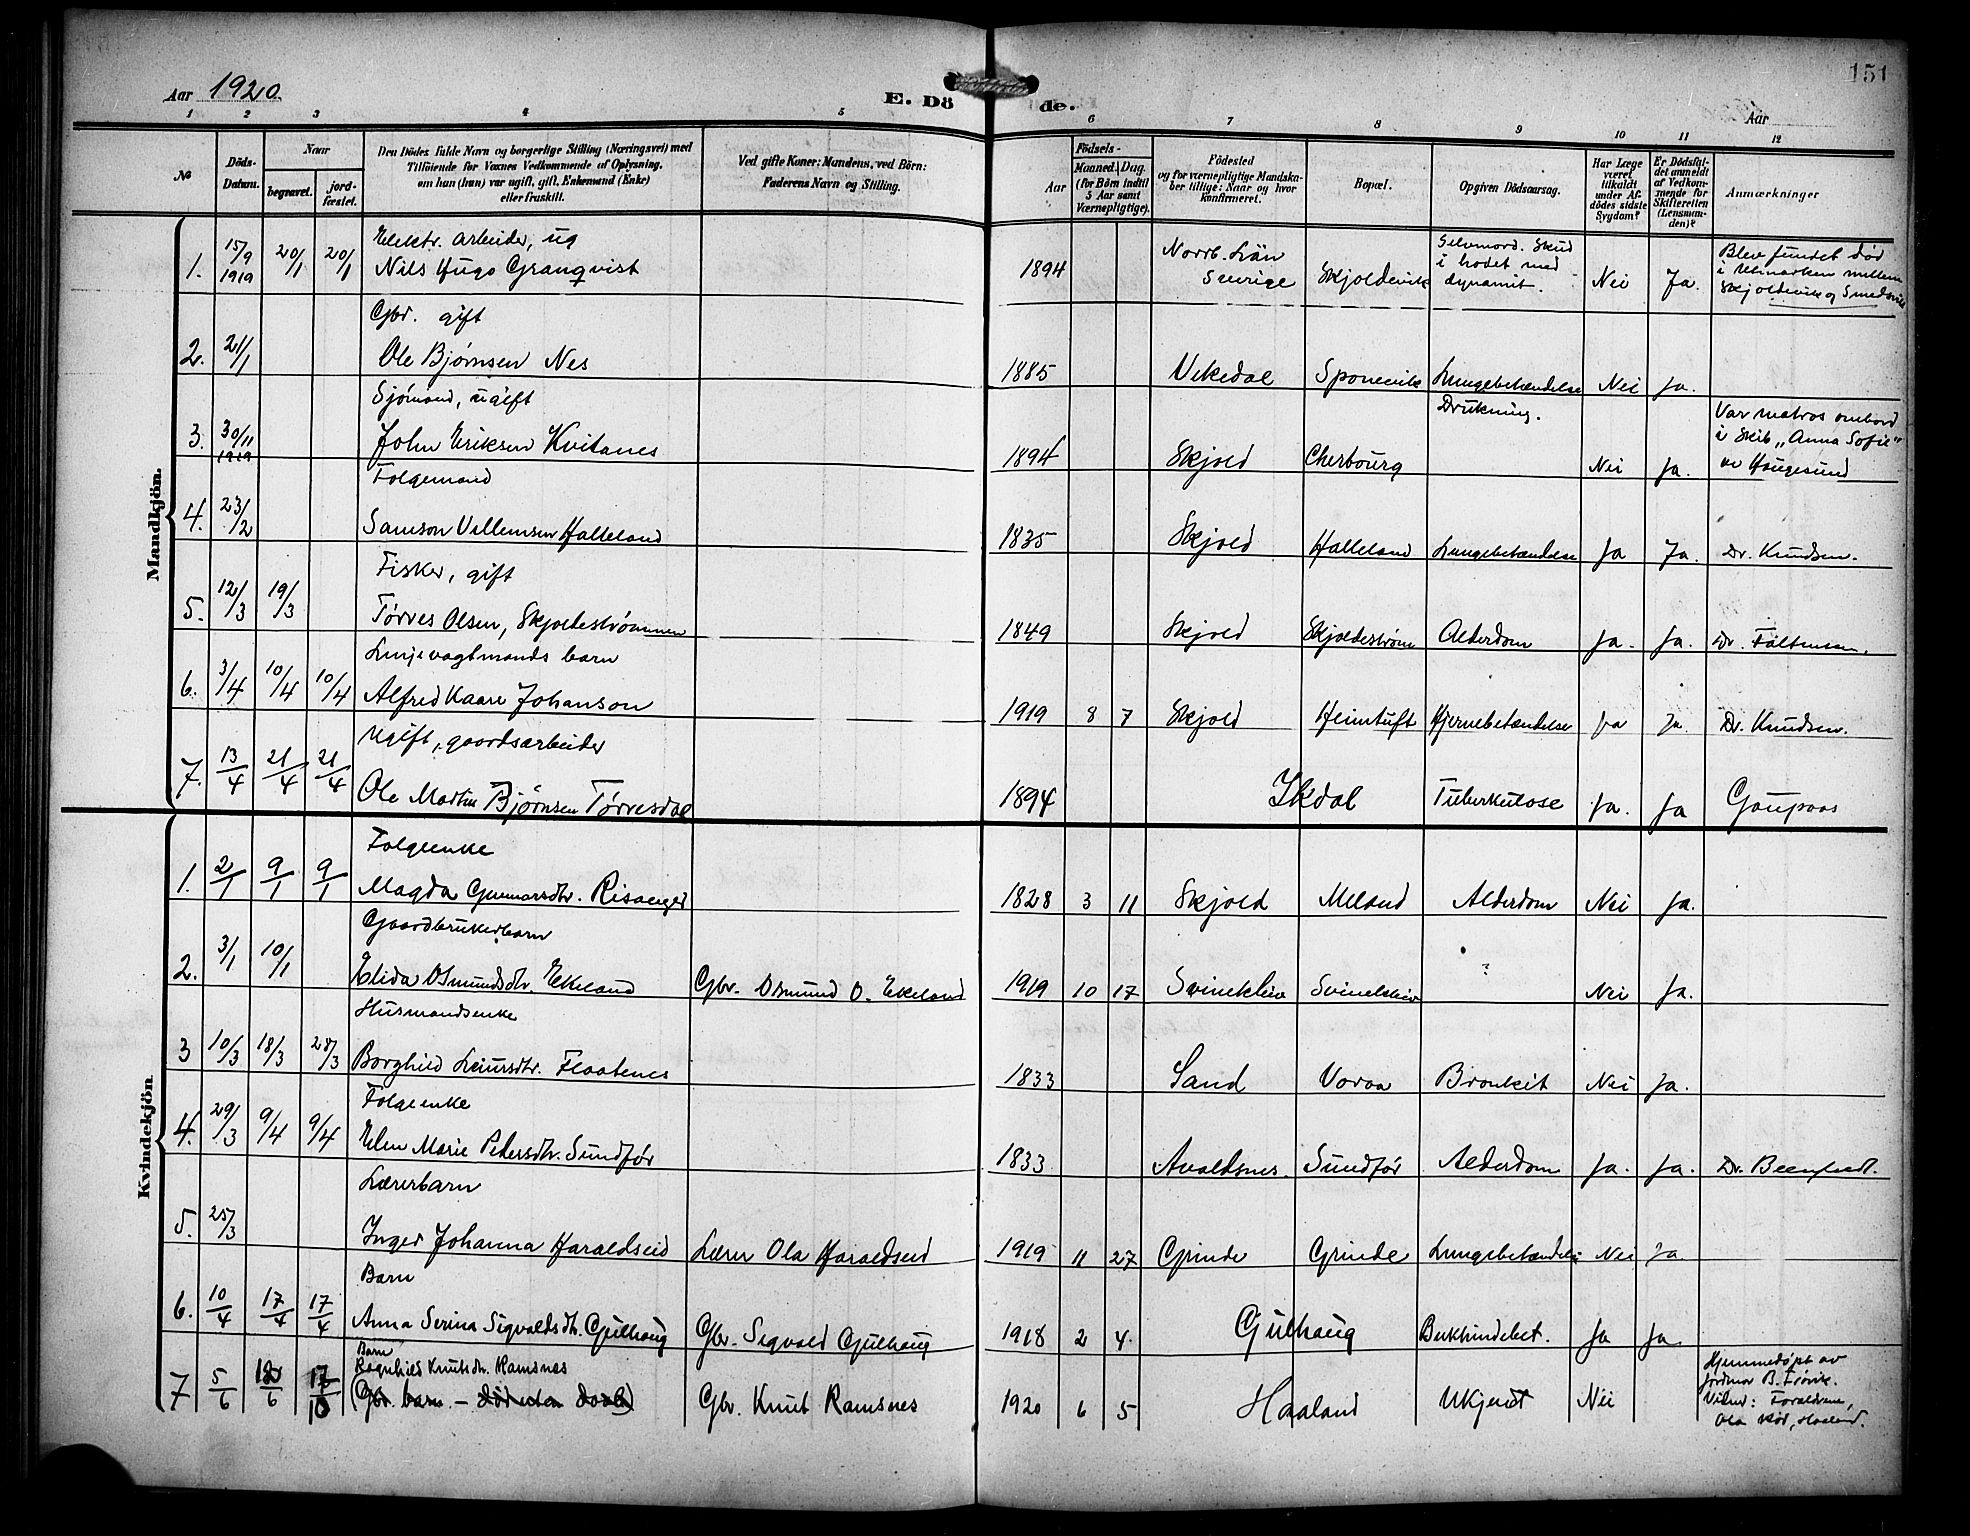 Aar 1920
E. Dö de.
151
Aar
1 2 3 4 5 6 7 8 9 10 11 12
№
Döds-
Datum.
Naar
begravet.
jord-
fæstet.
Den Dödes fulde Navn og borgerlige Stilling (Næringsvei) med
Tilföiende for Voxnes Vedkommende af Oplysning,
om han (hun) var ugift, gift, Enkemand (Enke)
eller fraskilt.
Ved gifte Koner: Mandens, ved Börn:
Faderens Navn og Stilling.
Födsels-
Aar
Maaned. Dag.
(for Börn indtil
5 Aar samt
Værnepligtige).
Födested
og for værnepligtige Mandska-
ber tillige: Naar og hvor
konfirmeret.
Bopæl.
Opgiven Dödsaarsag.
Har Læge
været
tilkaldt
under Af-
dödes sidste
Sygdom?
Er Dödsfal-
det anmeldt
af Vedkom-
mende for
Skifteretten
(Lensman-
den)?
Anmærkninger
Mandkjön.
1. 15/9 1919 20/1 20/1
Elektr. arbeider, ug
Nils Hugo Granqvist
1894
Norrb. Län
Sverige
Skjoldevik
Selvmord. Skud
i hodet med
dynamit.
Nei Ja.
Blev fundet död
i Utmarken mellem
Skjoldevik og Smedsvik
2. 21/1
Gbr. gift
Ole Bjørnsen Nes
1885 Vikedal Sponevik Lungebetændelse Nei Ja.
3. 30/11 1919
Sjømand, ugift
John Eriksen Kvitanes
1894 Skjold Cherbourg
Drukning.
Nei Ja.
Var matros ombord
i Skib „Anna Sofie"
av Haugesund
4. 23/2
Folgemand
Samson Villemsen Halleland
1835 Skjold Halleland Lungebetændelse Ja Ja. Dr. Knudsen.
5. 12/3 19/3
Fisker, gift
Tørres Olsen, Skjoldestrømmen
1849 Skjold Skjoldestrøm Alderdom Ja. Ja. Dr.
6. 3/4 10/4 10/4
Linjevagtmands barn
Alfred Kaare Johanson
1919 8 7 Skjold Heimtuft Hjernebetændelse Ja Ja. Dr. Knudsen.
7. 13/4 21/4 21/4
Ugift, gaardsarbeider
Ole Martin Bjørnsen Tørresdal
1894 Ikdal Tuberkulose Ja. Ja Gaupaas
Kvindekjön.
1. 2/1 9/1 9/1
Folgeenke
Magda Gunnarsdtr. Risanger
1828 3 11 Skjold Meland Alderdom Nei Ja.
2. 3/1 10/1
Gaardbrukerbarn
Elida Osmundsdtr. Ekeland
Gbr. Osmund O. Ekeland
1919 10 17 Svineklev Svineklev ? Nei Ja.
3 10/3 18/3 28/3
Husmandsenke
Borghild Leiursdtr. Flaatenes
1833 Sand Voraa Bronkit Nei Ja.
4. 29/3 9/4 9/4
Folgeenke
Elen Marie Pedersdtr. Sundfør
1833 Avaldsnes. Sundfør Alderdom Ja. Ja. Dr.
5. 25/3
Lærerbarn
Inger Johanna Haraldseid
Lærer Ola Haraldseid
1919 11 27 Grinde Grinde Lungebetændelse Nei Ja.
6. 10/4 17/4 17/4
Barn
Anna Serina Sigvaldsdtr. Gjulhaug
Gbr. Sigvald Gjulhaug
1918 2 4. Gjulhaug Bukhindebet. Ja Ja
7 5/6
Barn
Ragnhild Knutsdtr. Ramsnes
(Gbr. barn. – død uten daab)
Gbr. Knut Ramsnes
1920 6 5 Haaland Ukjendt Nei
Hjemmedøpt av
jordmor B.
Vidner: Forældrene,
Ola